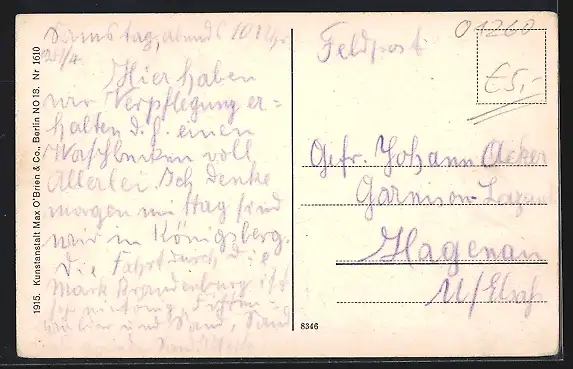 Samstag, abends 10 Uhr
Hier haben
wir Verpflegung er=
halten d. h. einen
Waschbecken voll
Allerlei. Ich denke
morgen mittag sind
wir in Königsberg.
Die Fahrt durch die
Mark Brandenburg ist
und Sand, Sand
1915. Kunstanstalt Max O'Brien & Co., Berlin NO 13. Nr 1610
Feldpost
01260
€5,-
Gefr. Johann Acker
Garnison-Lazarett
Hagenau
U/Elsaß
8346